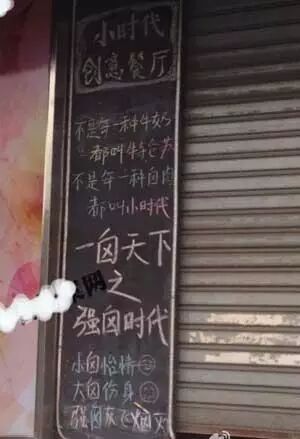 小时代
创意餐厅
不是每一种牛奶
都叫特仑苏
不是每一种卤肉
都叫小时代
一卤天下
之
强卤时代
小卤怡情
大卤伤身
强卤灰飞烟灭
网